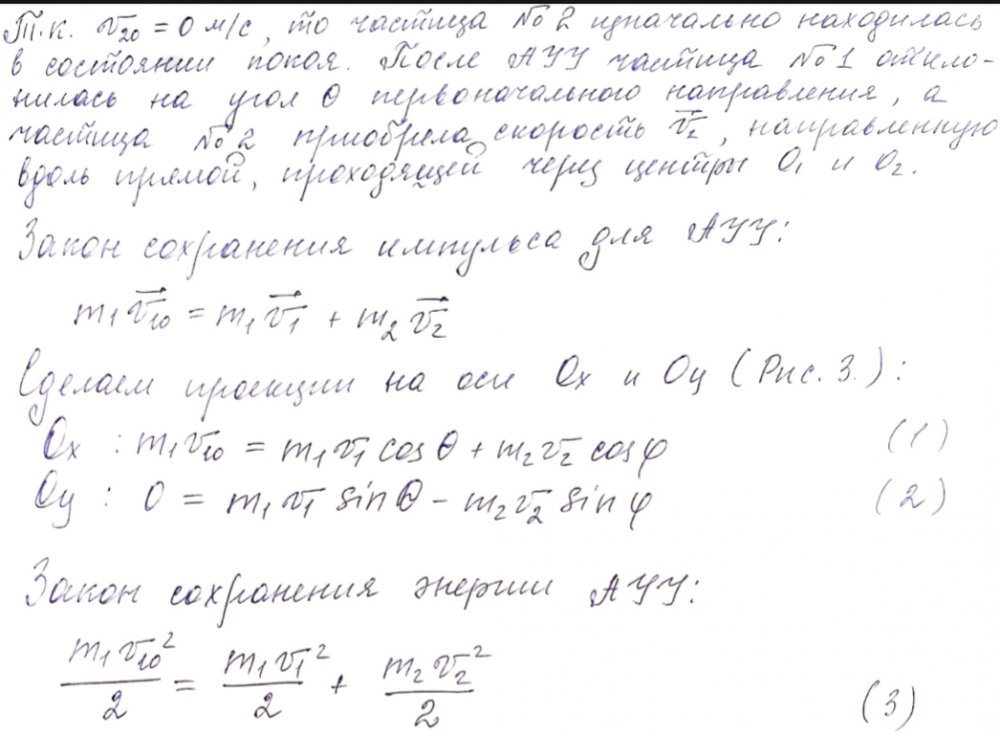 Т.к. v₂₀ = 0 м/с, то частица № 2 изначально находилась
в состоянии покоя. После АУУ частица № 1 откло-
нилась на угол θ первоначального направления, а
частица № 2 приобрела скорость v⃗₂, направленную
вдоль прямой, проходящей через центры O₁ и O₂.
Закон сохранения импульса для АУУ:
m₁v⃗₁₀ = m₁v⃗₁ + m₂v⃗₂
Сделаем проекции на оси Ox и Oy (Рис. 3.):
Ox : m₁v₁₀ = m₁v₁ cosθ + m₂v₂ cosφ (1)
Oy : 0 = m₁v₁ sinθ − m₂v₂ sinφ (2)
Закон сохранения энергии АУУ:
m₁v₁₀²/2 = m₁v₁²/2 + m₂v₂²/2 (3)